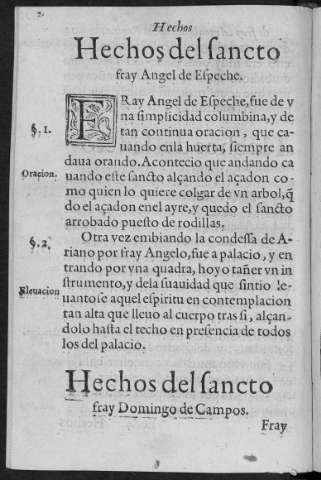 2.
Hechos
Hechos del sancto
fray Angel de Espeche.
§. 1.
FRay Angel de Espeche, fue de v
na simplicidad columbina, y de
tan continua oracion, que ca-
uando en la huerta, siempre an
Oracion.
daua orando. Acontecio que andando ca
uando este sancto alçando el açadon co-
mo quien lo quiere colgar de vn arbol, q̃
do el açadon en el ayre, y quedo el sancto
arrobado puesto de rodillas.
§. 2.
Otra vez embiando la condessa de A-
riano por fray Angelo, fue a palacio, y en
trando por vna quadra, hoyo tañer vn in
strumento, y dela suauidad que sintio le-
Eleuacion
uantose aquel espiritu en contemplacion
tan alta que lleuo al cuerpo tras si, alçan-
dolo hasta el techo en presencia de todos
los del palacio.
Hechos del sancto
fray Domingo de Campos.
Fray